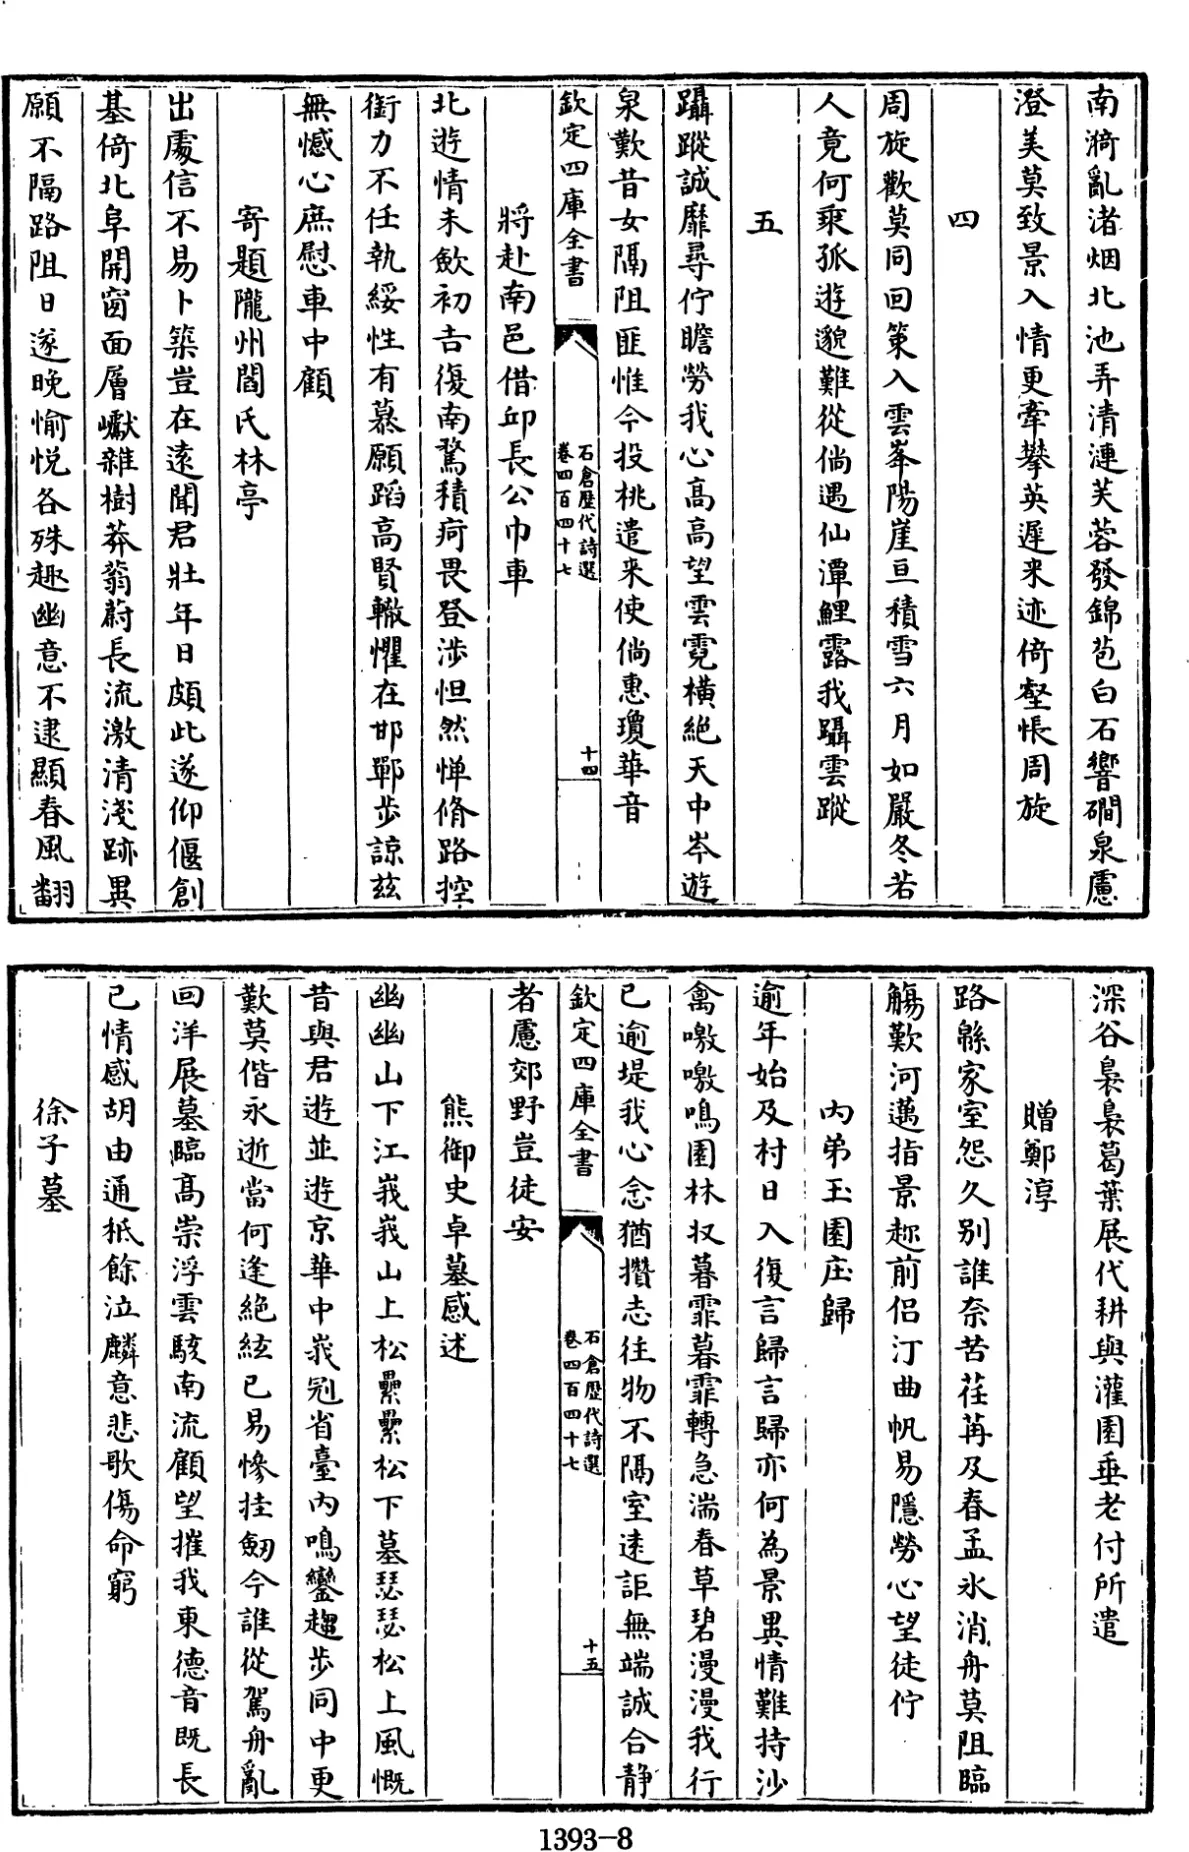 南漪亂渚烟北池弄清漣芙蓉發錦苞白石響磵泉慮
澄美莫致景入情更牽攀英遲来迹倚壑悵周旋
四
周旋歡莫同回策入雲峯陽崖亘積雪六月如嚴冬若
人竟何乘孤遊邈難從倘遇仙潭鯉露我躡雲蹤
五
躡蹤誠靡尋佇瞻勞我心高高望雲霓橫絶天中岑遊
泉歎昔女隔阻匪惟今投桃遣来使倘惠瓊華音
欽定四庫全書
石倉歷代詩選
卷四百四十七
十四
將赴南邑借邱長公巾車
北遊情未歛初吉復南騖積疴畏登渉怛然惮脩路控
銜力不任執綏性有慕願蹈高賢轍懼在邯鄲步諒兹
無憾心庶慰車中顧
寄題隴州閻氏林亭
出處信不易卜築豈在逺聞君壯年日頗此遂仰偃創
基倚北阜開窗面層巘雜樹莽蓊蔚長流激清淺跡異
願不隔路阻日遂晚愉悦各殊趣幽意不逮顯春風翻
深谷裊裊葛葉展代耕與灌園垂老付所遣
贈鄭淳
路緜家室怨久别誰奈苦荏苒及春孟氷消舟莫阻臨
觴歎河邁指景趂前侣汀曲帆易隱勞心望徒佇
内弟玉園庄歸
逾年始及村日入復言歸言歸亦何為景異情難持沙
禽噭噭鳴園林収暮霏暮霏轉急湍春草碧漫漫我行
已逾堤我心念猶攢志往物不隔室逺詎無端誠合静
欽定四庫全書
石倉歷代詩選
卷四百四十七
十五
者慮郊野豈徒安
熊御史卓墓感述
幽幽山下江峩峩山上松纍纍松下墓瑟瑟松上風慨
昔與君遊並遊京華中峩冠省臺内鳴鑾趨步同中更
歎莫偕永逝當何逢絶絃已易惨挂劒今誰從駕舟亂
回洋展墓臨髙崇浮雲駭南流顧望摧我東德音既長
已情感胡由通抵餘泣麟意悲歌傷命窮
徐子墓
1393-8